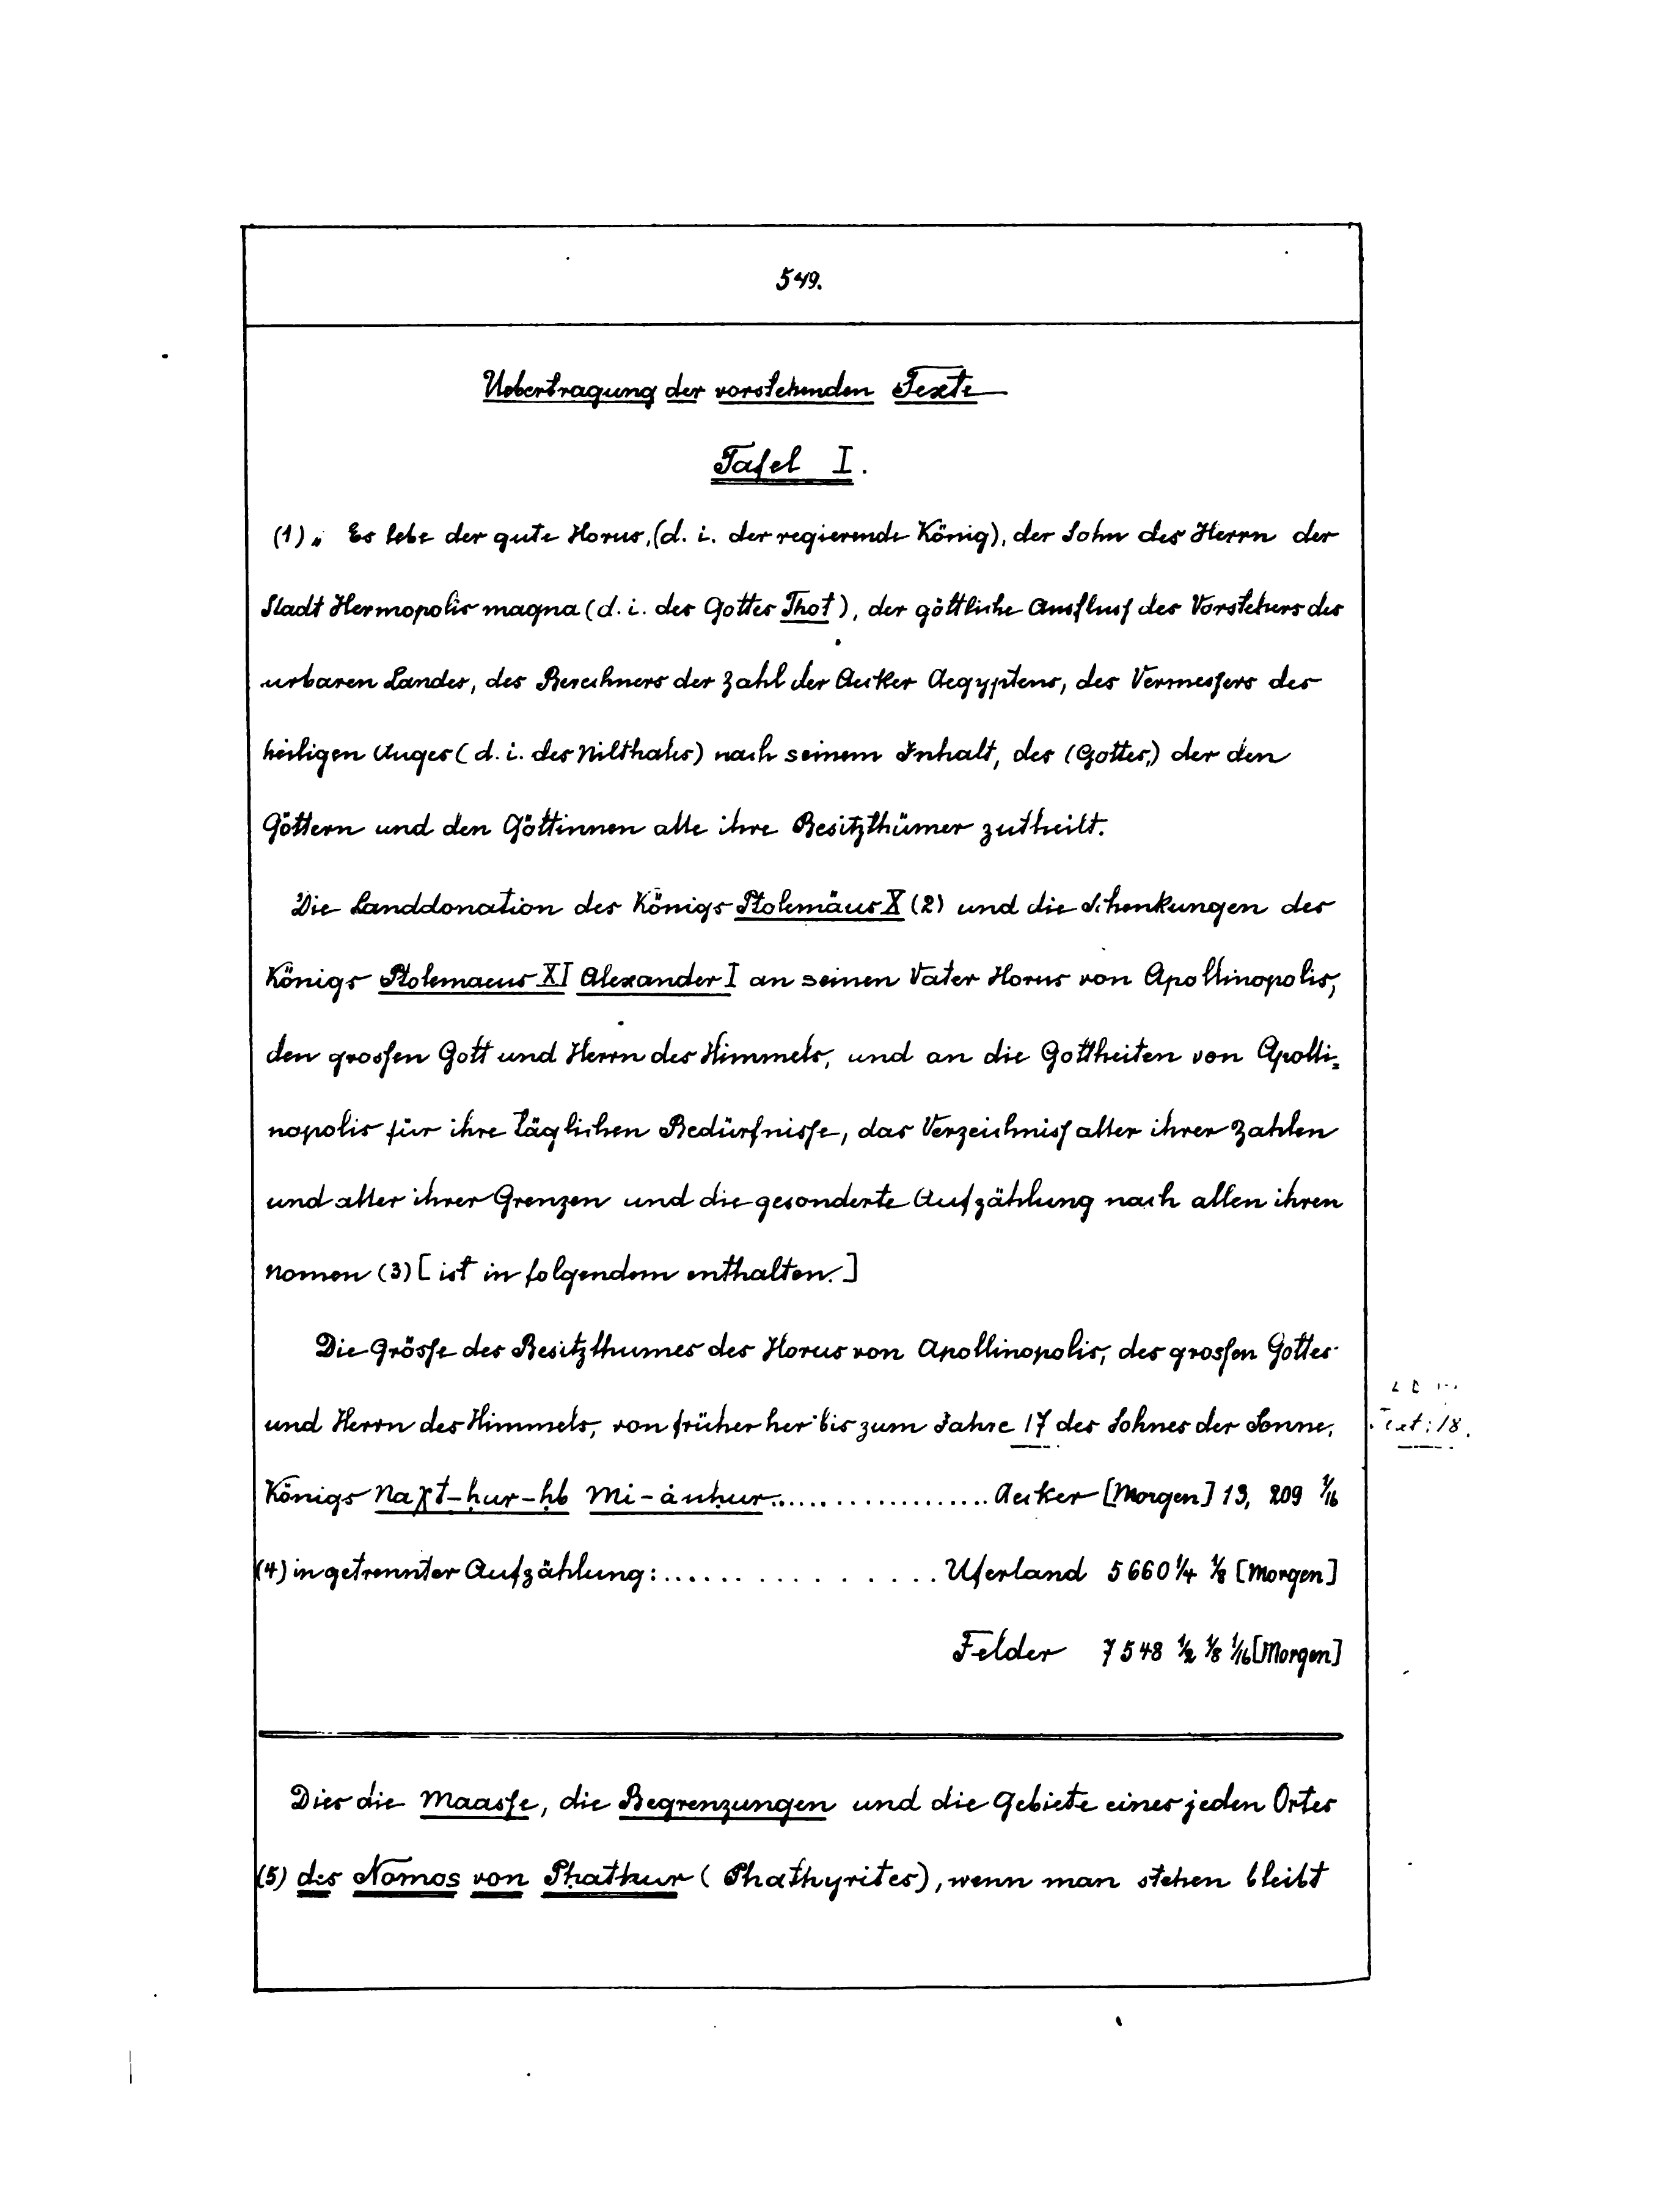 549.
Uebertragung der vorstehenden Texte
Tafel I.
(1) „ Es lebe der gute Horus, (d. i. der regierende König), der Sohn des Herrn der
Stadt Hermopolis magna (d. i. des Gottes Thot), der göttliche Ausfluss des Vorstehers des
urbaren Landes, des Berechners der Zahl der Aecker Aegyptens, des Vermessers des
heiligen Auges (d. i. des Nilthales) nach seinem Inhalt, des (Gottes,) der den
Göttern und den Göttinnen alle ihre Besitzthümer zutheilt.
Die Landdonation des Königs Ptolemäus X (2) und die Schenkungen des
Königs Ptolemaeus XI Alexander I an seinen Vater Horus von Apollinopolis,
den grossen Gott und Herrn des Himmels, und an die Gottheiten von Apolli=
nopolis für ihre täglichen Bedürfnisse, das Verzeichniss aller ihrer Zahlen
und aller ihrer Grenzen und die gesonderte Aufzählung nach allen ihren
Nomen (3) [ist in folgendem enthalten.]
Die Grösse des Besitzthumes des Horus von Apollinopolis, des grossen Gottes
und Herrn des Himmels, von früher her bis zum Jahre 17 des Sohnes der Sonne,
Text: 18.
Königs Naχt-ḥur-ḥb Mi-ànḥur.................... Aecker [Morgen] 13, 209 1/16
(4) in getrennter Aufzählung:................. Uferland 5660 1/4 1/8 [Morgen]
Felder 7548 1/2 1/8 1/16 [Morgen]
Dies die Maasse, die Begrenzungen und die Gebiete eines jeden Ortes
(5) des Nomos von Phathur (Phathyrites), wenn man stehen bleibt